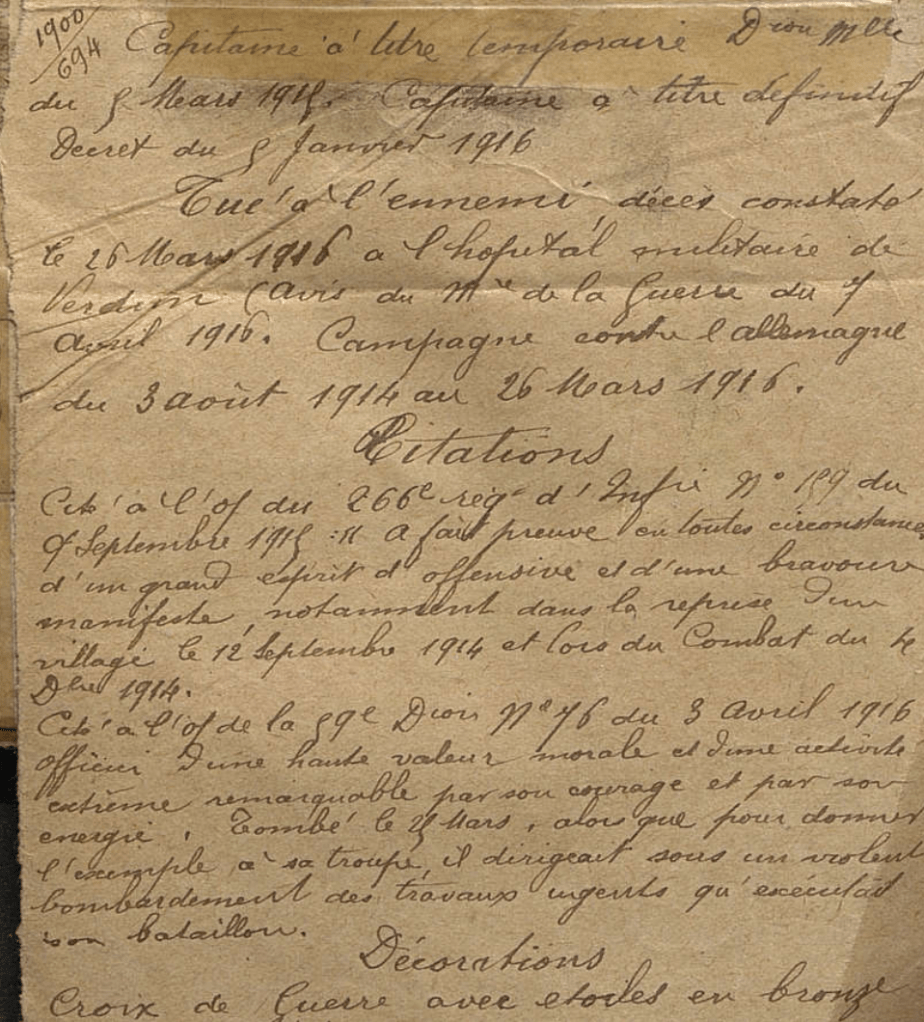 1900
694
Capitaine à titre temporaire Dion Mlle
du 5 Mars 1915. Capitaine a titre définitif
Décret du 5 Janvier 1916
Tué à l'ennemi, décès constaté
le 26 Mars 1916 a l'hopital militaire de
Verdun (Avis du Mre de la Guerre du 7
Avril 1916. Campagne contre l'allemagne
du 3 août 1914 au 26 Mars 1916.
Citations
Cité à l'of du 266e rég d'Infie No 159 du
7 Septembre 1915 : Il a fait preuve en toutes circonstances
d'un grand esprit d'offensive et d'une bravoure
manifeste, notamment dans la reprise d'un
village le 12 Septembre 1914 et lors du Combat du 4
Dbre 1914.
Cité à l'of de la 59e Dion No 76 du 3 Avril 1916
Officier d'une haute valeur morale et d'une activité
extrême remarquable par son courage et par son
energie. Tombé le 25 Mars, alors que pour donner
l'exemple à sa troupe, il dirigeait sous un violent
bombardement des travaux urgents qu'exécutait
son bataillon.
Décorations
Croix de Guerre avec etoiles en bronze